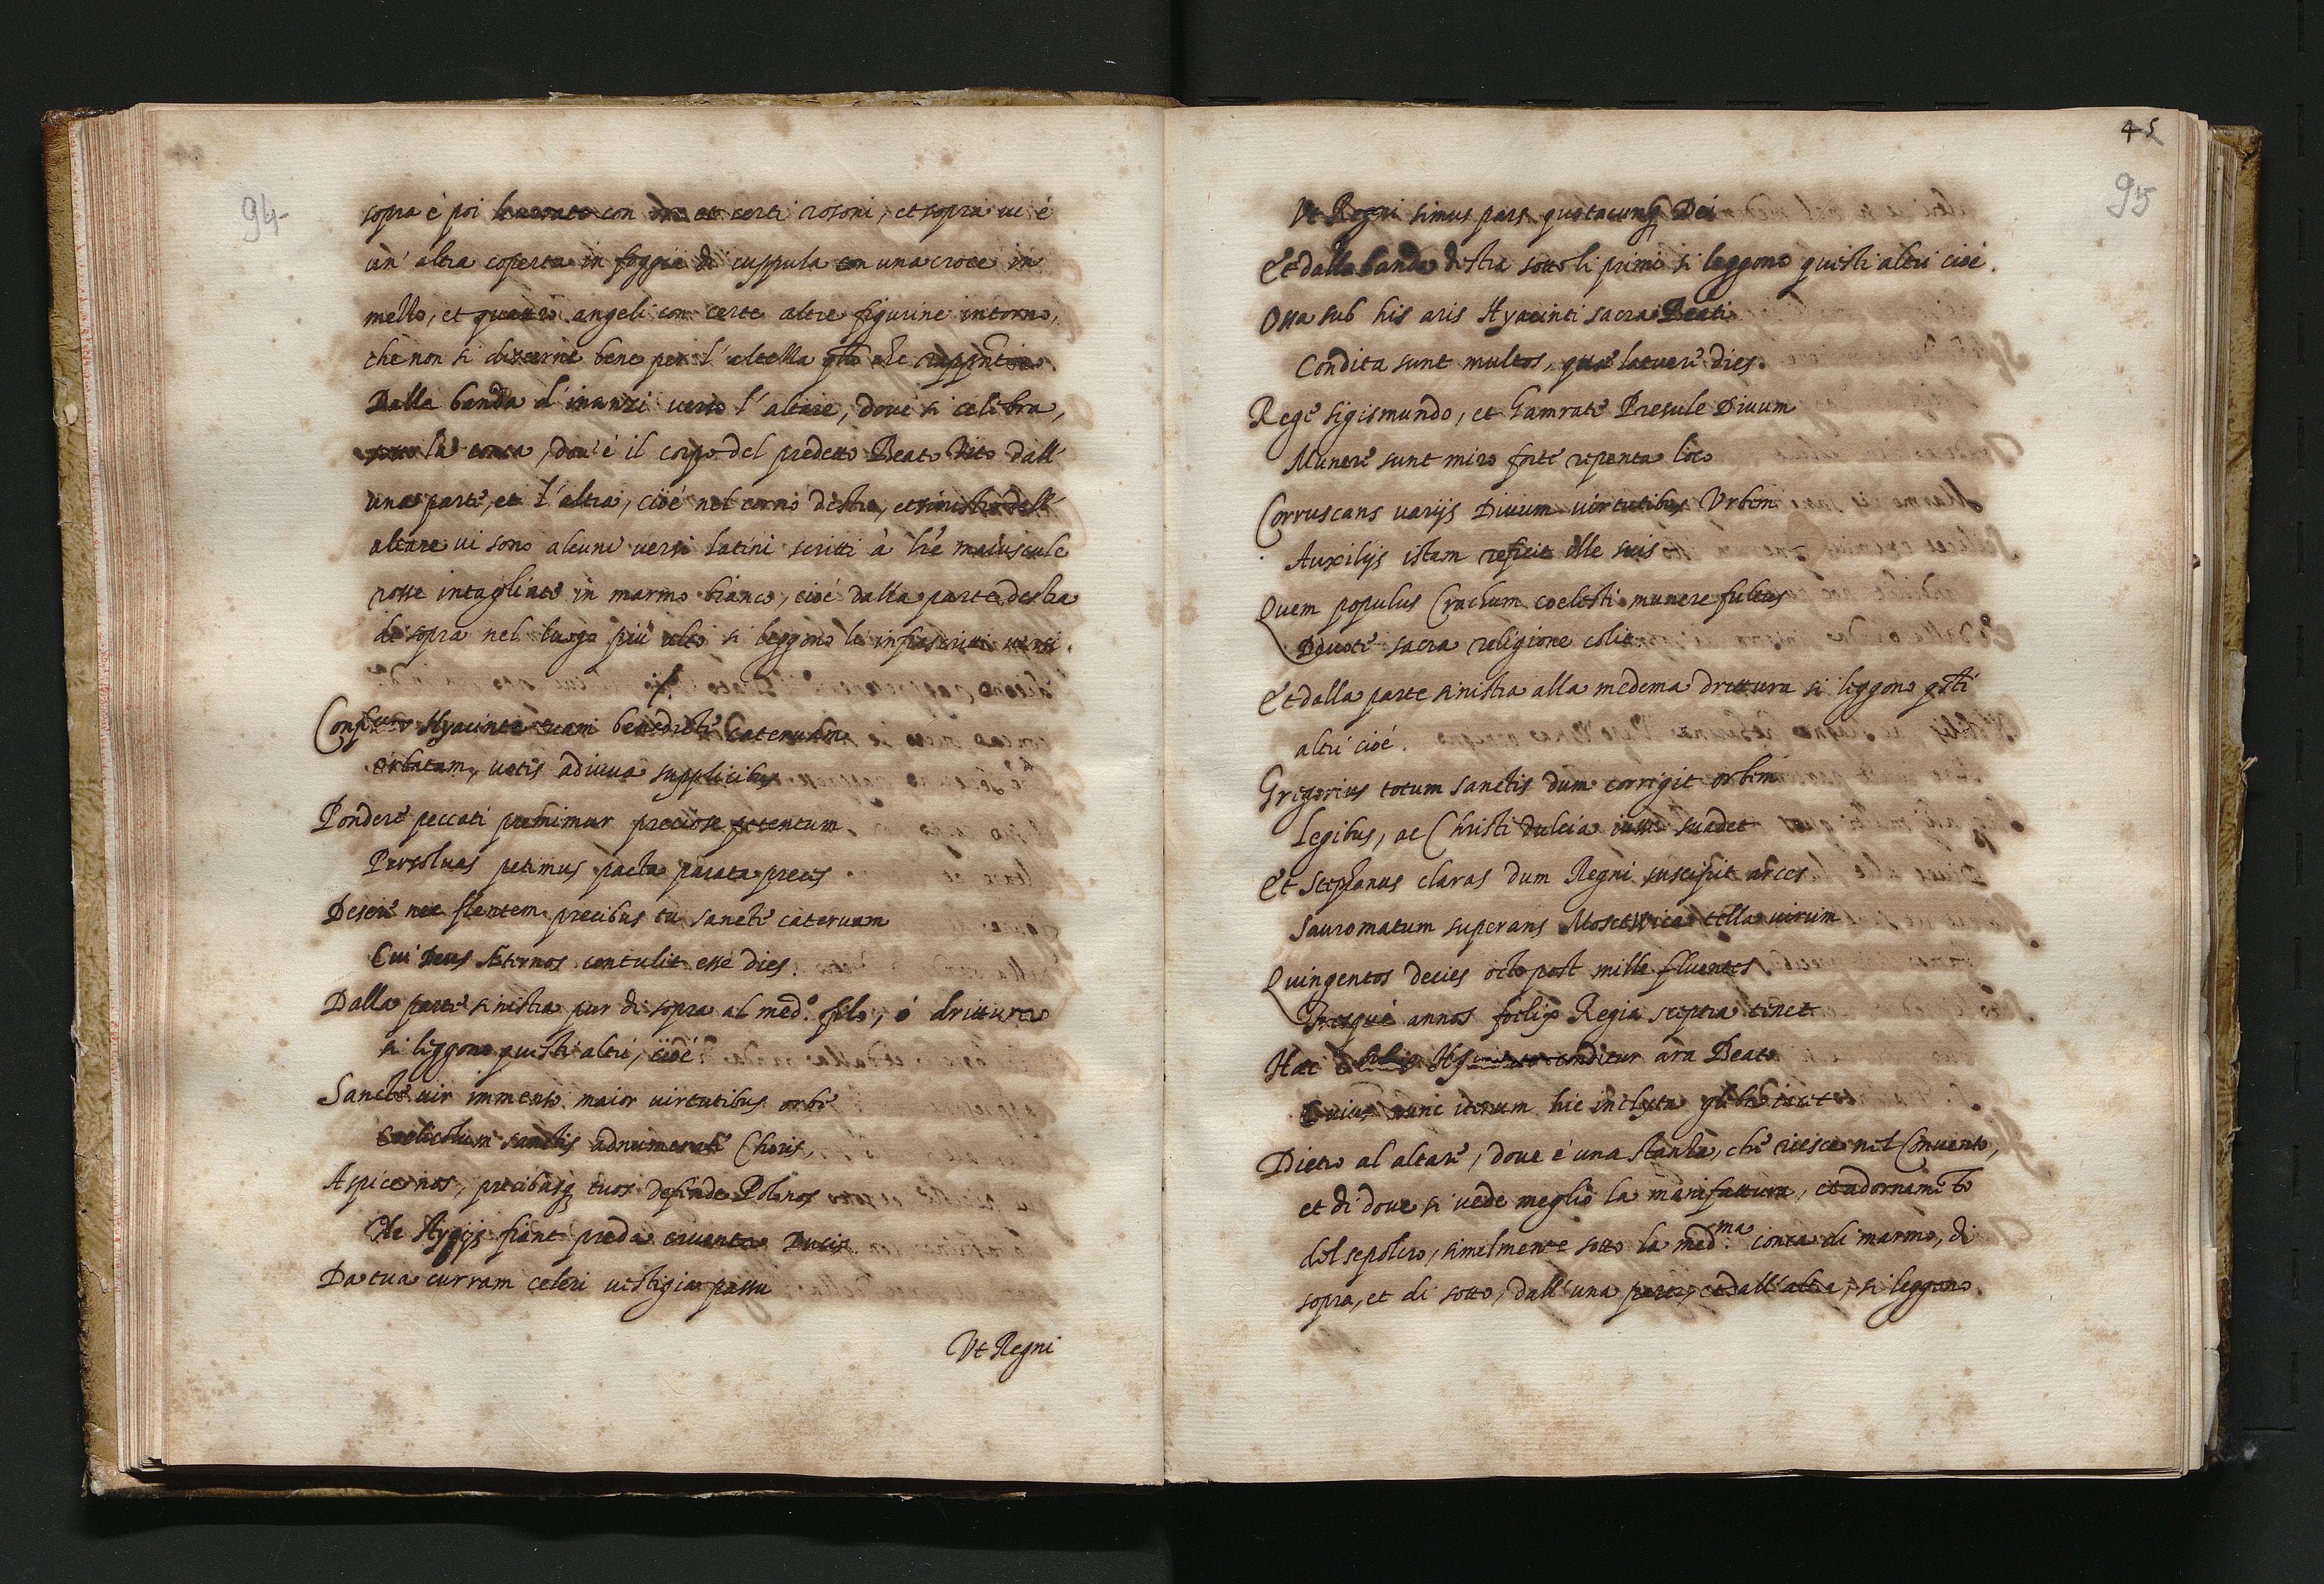 94
sopra è poi lauorato con oro et certi rosoni, et sopra ui è
un' altra coperta in foggia di cuppula con una croce in
mezzo, et quattro angeli con certe altre figurine intorno,
che non si discerne bene per l'altezza
Dalla banda d'inanzi uerso l'altare, doue si celebra,
sotto la conca, dou'è il corpo del predetto Beato dall'
una parte, et l'altra, cioè nel corno destro, et sinistro dell'
altare ui sono alcuni uersi latini scritti à lre maiuscule
rosse intagliate in marmo bianco, cioè dalla parte destra
di sopra nel luogo più alto si leggono li infrascritti uersi.
Hyacinte tuam benedicte cateruam
orbatam, uotis adiuua supplicibus
Pondere peccati premimur preciose
Persoluas petimus pacta parata preces
Desere nec flentem precibus tu sancte cateruam
Cui Deus Æternos contulit esse dies
Dalla parte sinistra pur di sopra al med.o filo, ò drittura
si leggono questi altri, cioè
Sancte uir immenso maior uirtutibus orbe
Coelicolum sanctis adnumerate Choris,
Aspice nos, precibusq tuos defende Polonos
Ne Stygijs fiant preda cruenta Ducis
Da tua curram celeri uestigia passu
Vt Regni
45
95
Vt Regni simus pars quotacunq Dei
Et dalla banda destra sotto li primi si leggono questi altri cioè.
Ossa sub his aris Hyacinti sacra Beati
Condita sunt multos, quae latuere dies.
Rege Sigismundo, et Gamrate Presule Diuum
Munere sunt miro forte reperta loco
Corruscans uarijs Diuum uirtutibus Vrbem
Auxilijs istam reficit ille suis
Quem populus Crachum coelesti munere fultus
Deuote sacra religione colit.
Et dalla parte sinistra alla medema drittura si leggono qsti
altri cioè.
Gregorius totum sanctis dum corrigit orbem
Legibus, ac Christi dulcia iussa suadet
Et Stephanus claras dum Regni suscipit arces
Sauromatum superans Moscovica tella uirum
Quingentos decies octo post mille fluentes
Tresque annos foelix Regia sceptra tenet
Haec conditur ara Beato
Cuius nunc iterum hic inclyta gleba iacet
Dietro al altare, doue è una stanza, che riesce nel Conuento,
et di doue si uede meglio la manifattura, et adornamto
del sepolcro, similmente sotto la med.ma conca di marmo, di
sopra, et di sotto, dall'una parte, et dall'altra, si leggono.